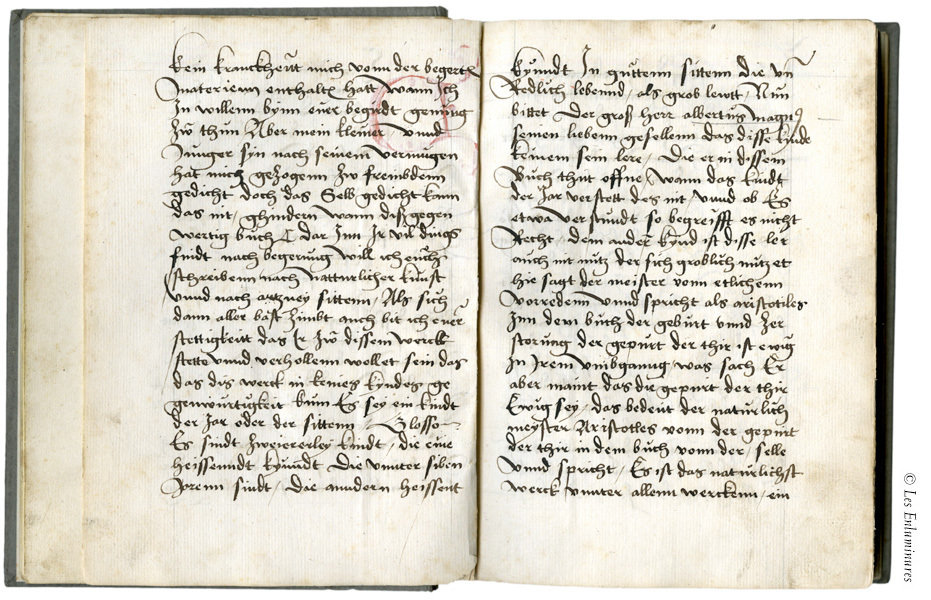 kein kranckheitt mich vonn der begertt
materienn enthaltt hatt wann ich
In willenn bynn euer begirdt genung
zw thun Aber mein kleiner vnnd
Junger syn nach seinem vermugen
hat mich gezogenn zw frembdem
gedicht doch das selb gedicht kann
das nit ghindern wann diß gegen
wertig buch dar Inn Ir vil dings
findt nach begerung will ich euch
schreibenn nach natturlicher kunst
vnnd nach artzney sittenn / Als sich
dann aller bast zimbt auch bit ich euer
stettigkeitt das Ir zw dissem werck
stette vnnd verhollenn wollet sein das
das dis werck in keines kyndes ge
genwurtigkeit kum Es sey ein kindt
der Jar oder der sittenn / Glosso
Es sindt zweiererley kindt / die eine
heissenndt kynndt Die vnnter siben
Jarenn sindt / Die anndern heissent
kynndt In guttenn sittenn die vn
Redlich lebennd / als grob lewtt / Nun
bittet der groß herr albertus magnus
seinen liebenn gesellenn das disse kynde
keinem sein lere / Die er in dissem
Buch thut offne / wann das kindt
der Jar verstett des nit vnnd ob Es
etwa verstundt so begreifft es nicht
Recht / dem ander kynd ist disse ler
auch nit nutz der sich groblich nutzet
hie sagt der meister vonn etlichenn
vorredenn vnnd spricht als aristotiles
Inn dem buch der geburt vnnd zer
storung der gepurt der thir ist ewig
In Irem vmbganng was sach Er
aber maint das die gepirt der thir
Ewig sey / das bedeut der naturlich
meyster Aristotles vonn der gepurt
der thir in dem buch vonn der selle
Vnnd spricht / Es ist das naturlichst
werck vnnter allenn werckenn / ein
© Les Enluminures